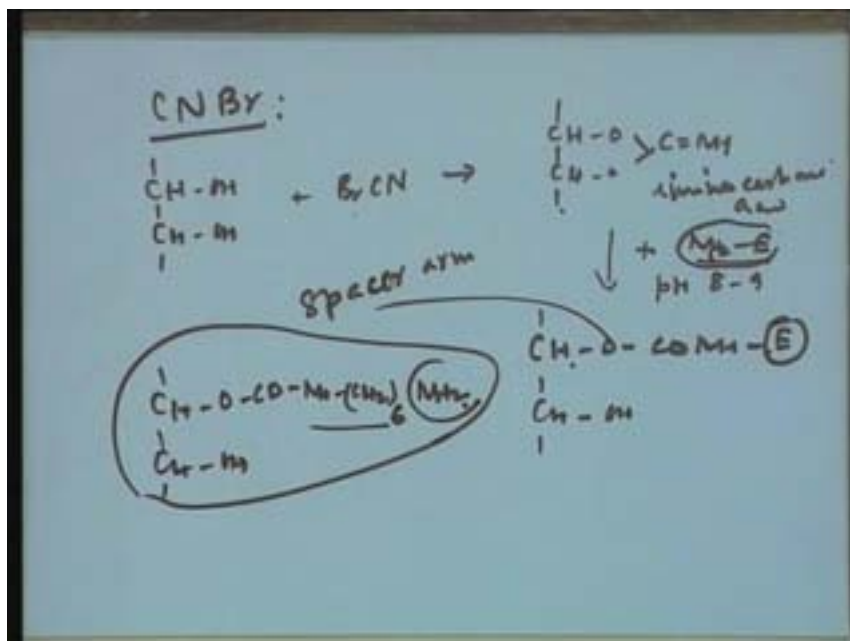 CNBr :
CH - OH
CH - OH
+ BrCN →
CH - O
CH - O
> C = NH
+ NH2 - E
pH 8 - 9
spacer arm
CH - O - CO NH - E
CH - OH
CH - O - CO - NH - (CH2)6 NH2
CH - OH